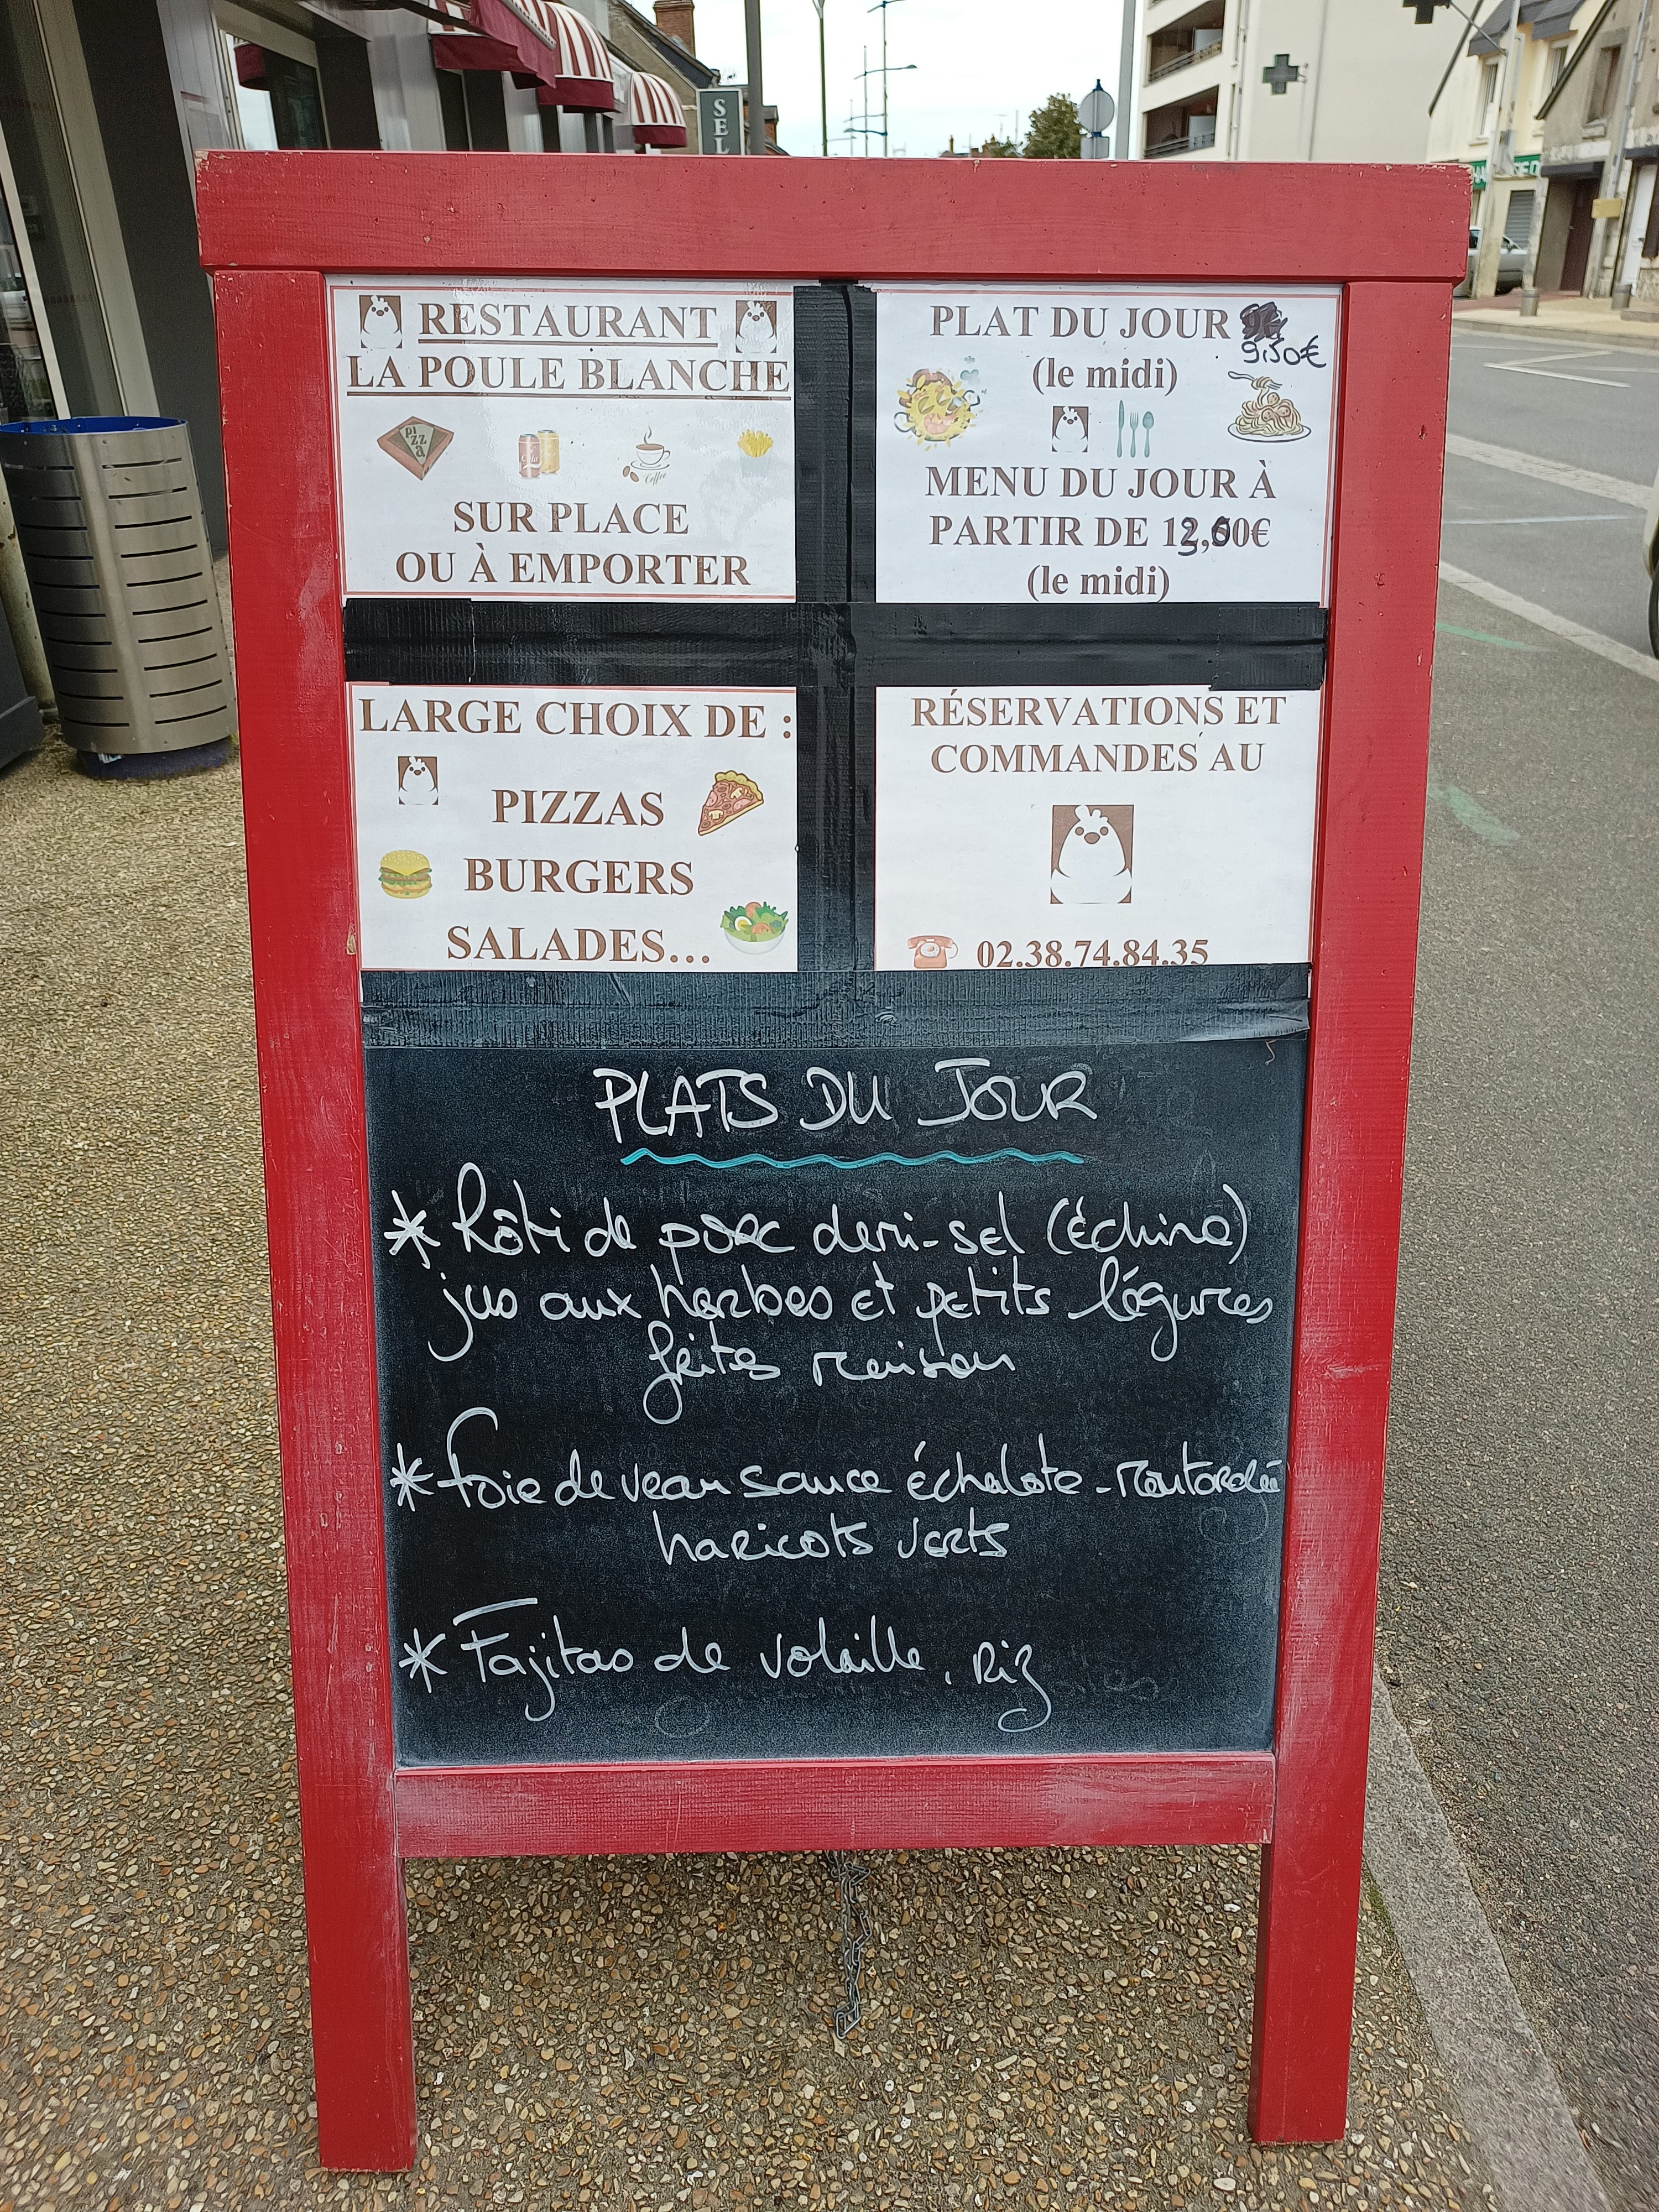 SEL
RESTAURANT
LA POULE BLANCHE
pizza
Cola
Coffee
SUR PLACE
OU À EMPORTER
PLAT DU JOUR
9,50€
(le midi)
MENU DU JOUR À
PARTIR DE 13,00€
(le midi)
LARGE CHOIX DE :
PIZZAS
BURGERS
SALADES...
RÉSERVATIONS ET
COMMANDES AU
02.38.74.84.35
PLATS DU JOUR
* Rôti de porc demi-sel (échine)
jus aux herbes et petits légumes
frites maison
* foie de veau sauce échalote-moutardée
haricots verts
* Fajitas de volaille, Riz